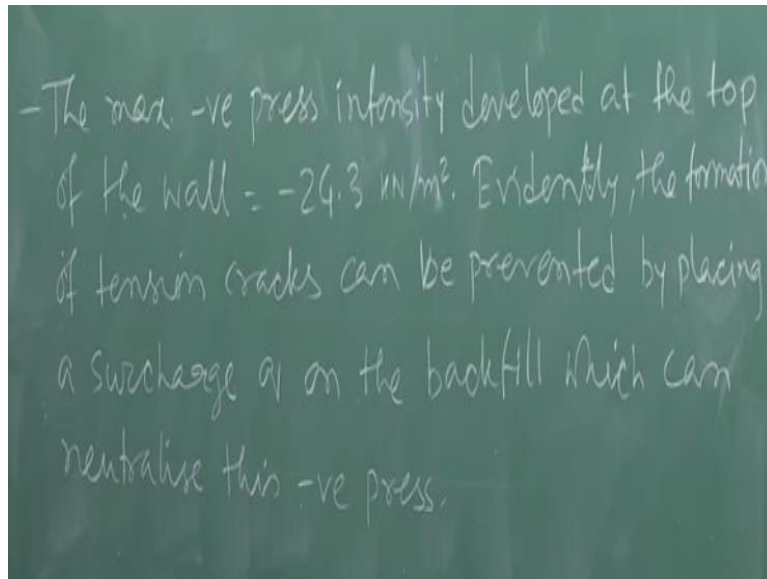 - The max. -ve press intensity developed at the top
of the wall = -24.3 kN/m². Evidently, the formation
of tension cracks can be prevented by placing
a surcharge q on the backfill which can
neutralise this -ve press.